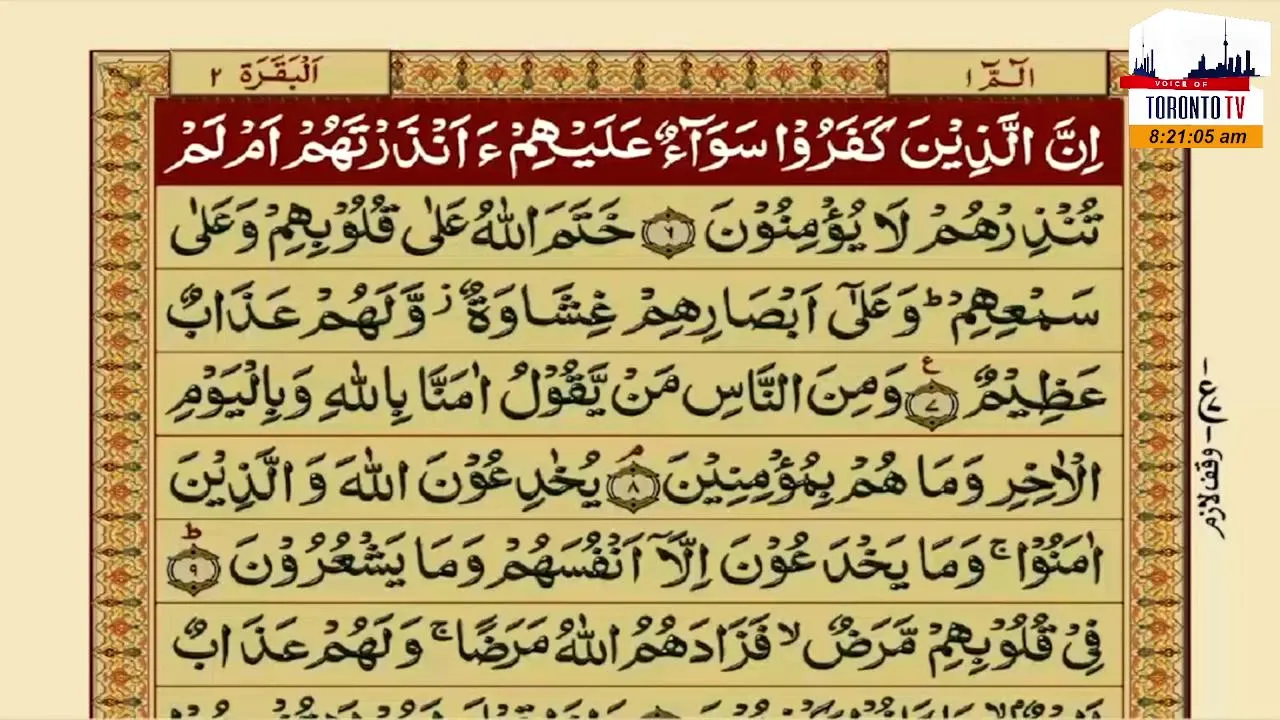 الٓـمّٓ ۱
اَلْبَقَرَة ۲
VOICE OF
TORONTO TV
8:21:05 am
اِنَّ الَّذِيْنَ كَفَرُوْا سَوَآءٌ عَلَيْهِمْ ءَ اَنْذَرْتَهُمْ اَمْ لَمْ
تُنْذِرْهُمْ لَا يُؤْمِنُوْنَ ۶ خَتَمَ اللّٰهُ عَلٰى قُلُوْبِهِمْ وَعَلٰى
سَمْعِهِمْ ؕ وَعَلٰٓى اَبْصَارِهِمْ غِشَاوَةٌ ز وَّلَهُمْ عَذَابٌ
عَظِيْمٌ ۷ ع وَمِنَ النَّاسِ مَنْ يَّقُوْلُ اٰمَنَّا بِاللّٰهِ وَبِالْيَوْمِ
الْاٰخِرِ وَمَا هُمْ بِمُؤْمِنِيْنَ ۘ ۸ يُخٰدِعُوْنَ اللّٰهَ وَ الَّذِيْنَ
اٰمَنُوْا ۚ وَمَا يَخْدَعُوْنَ اِلَّآ اَنْفُسَهُمْ وَمَا يَشْعُرُوْنَ ؕ ۹
فِيْ قُلُوْبِهِمْ مَّرَضٌ ۙ فَزَادَهُمُ اللّٰهُ مَرَضًا ۚ وَلَهُمْ عَذَابٌ
ع
وقف لازم